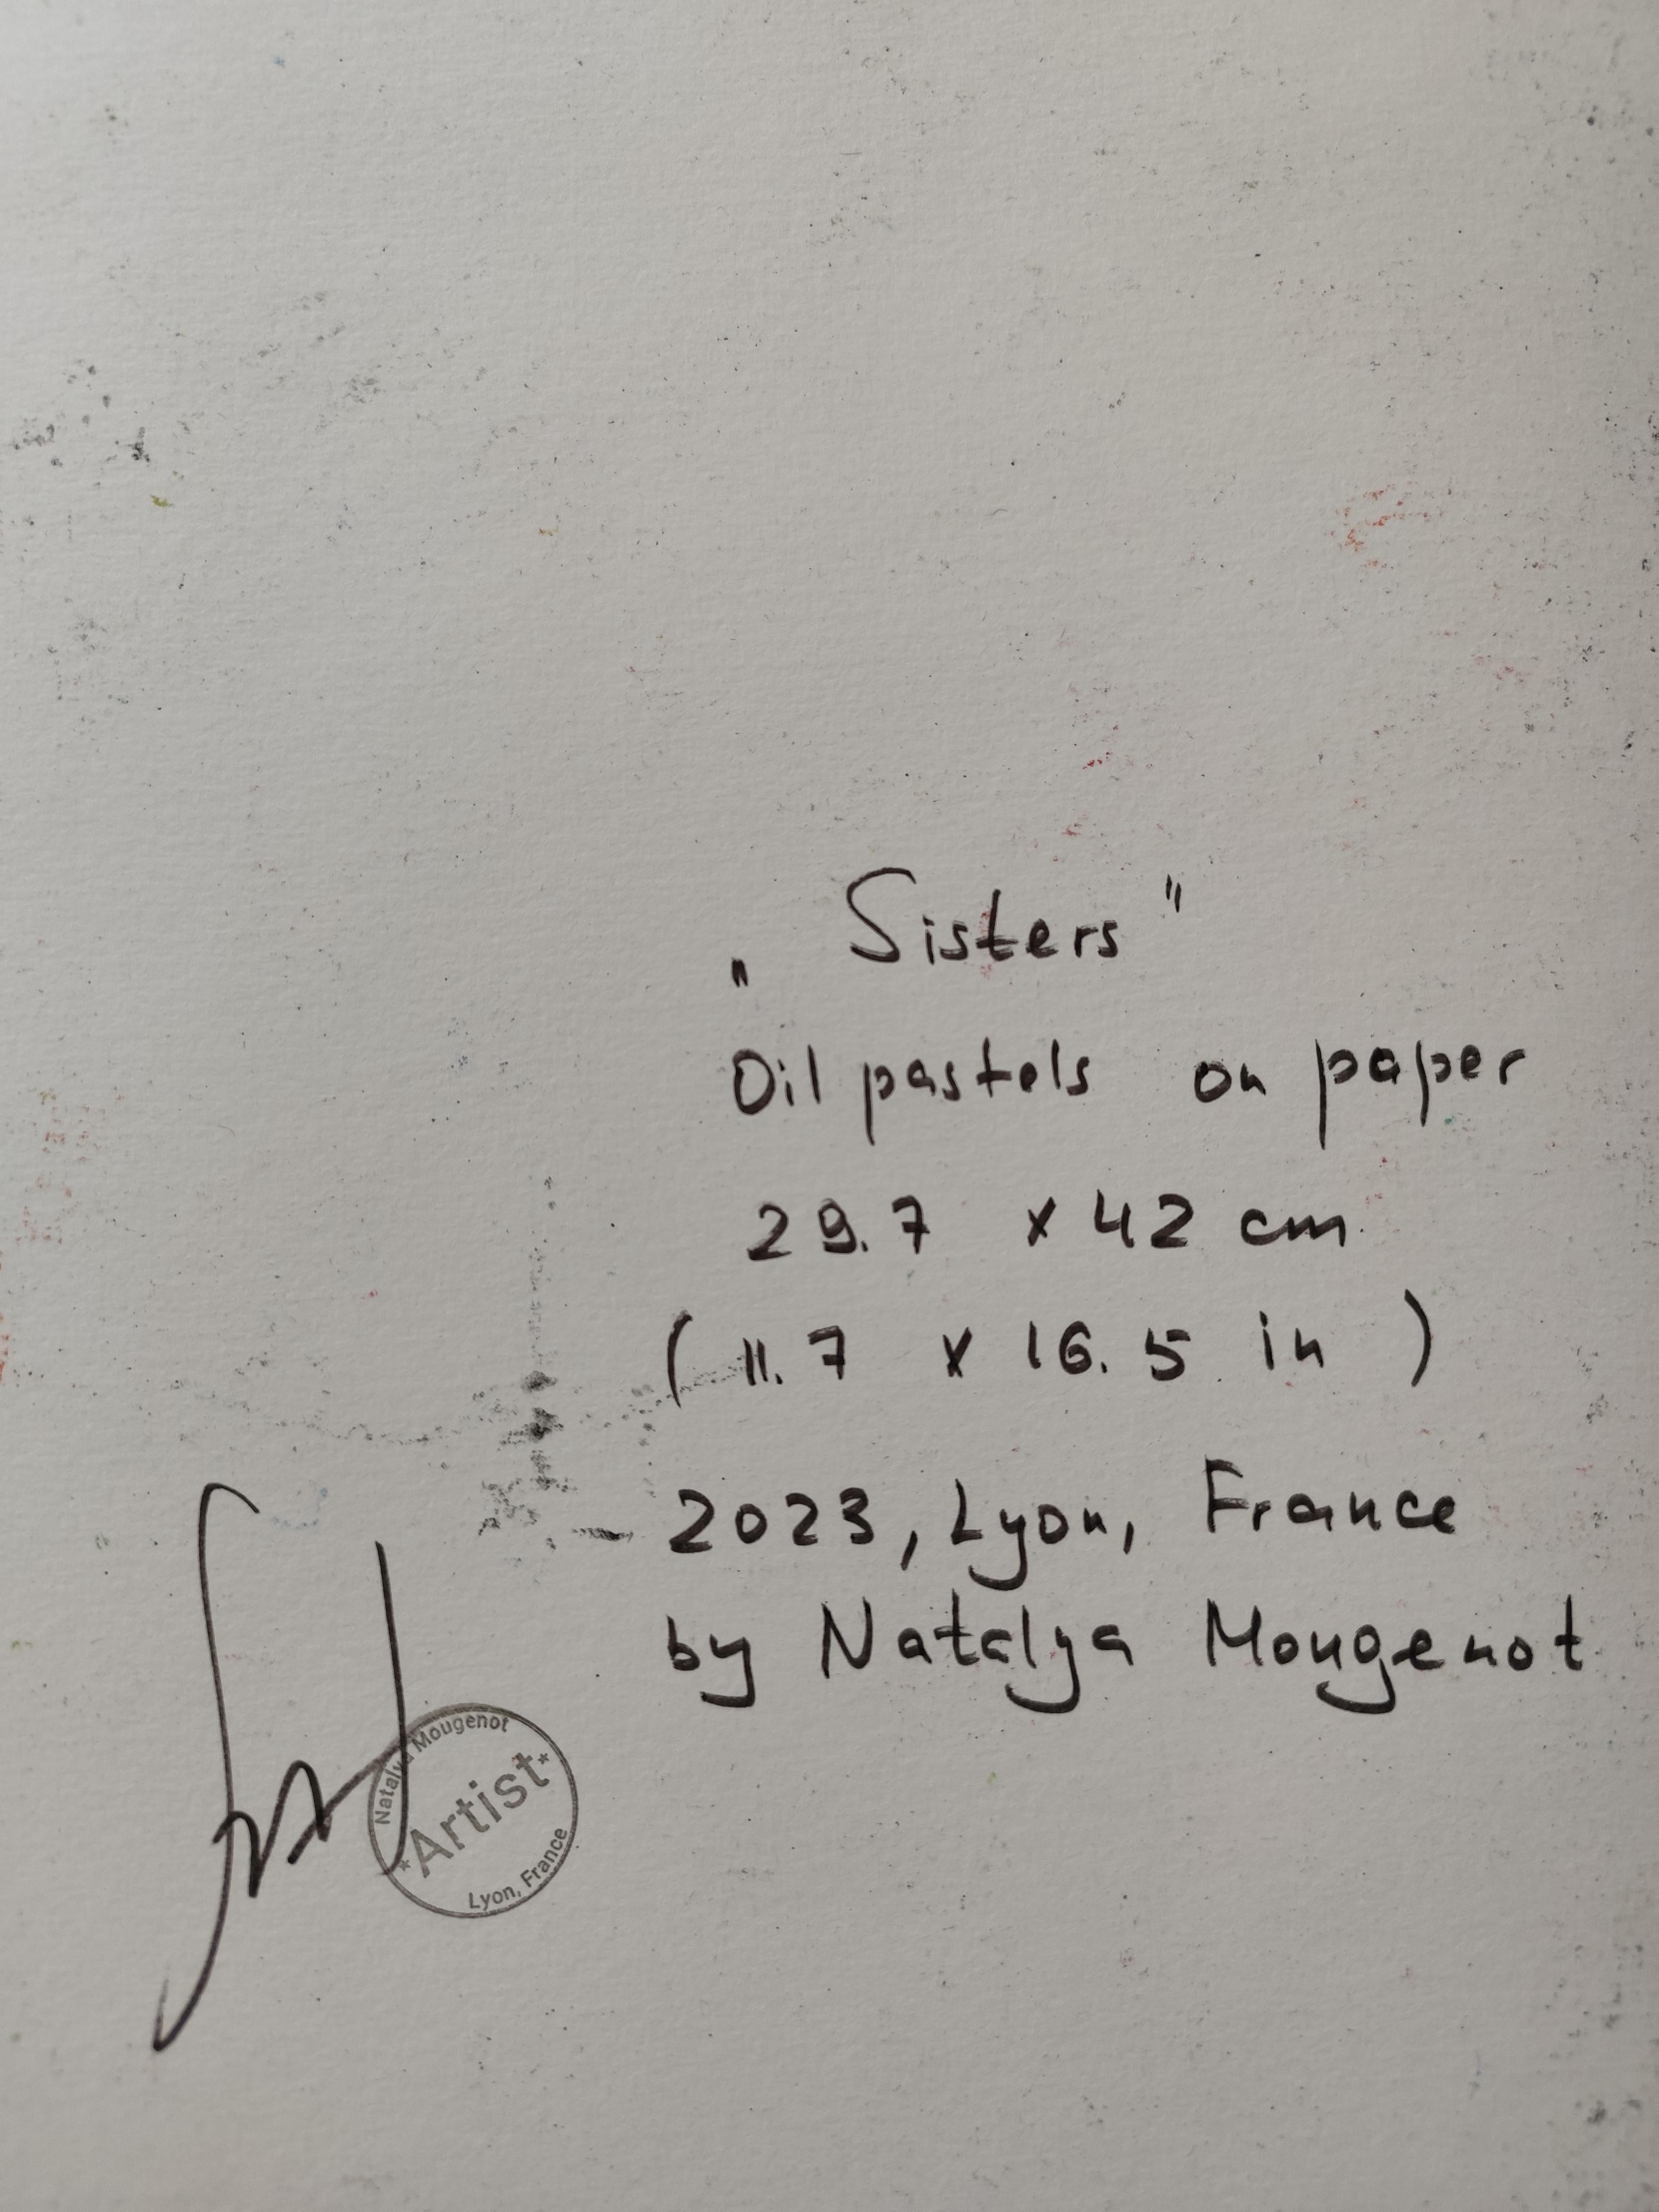 „Sisters"
Oil pastels on paper
29.7 x 42 cm
(11.7 x 16.5 in)
2023, Lyon, France
by Natalya Mougenot
Natalya Mougenot
*Artist*
Lyon, France